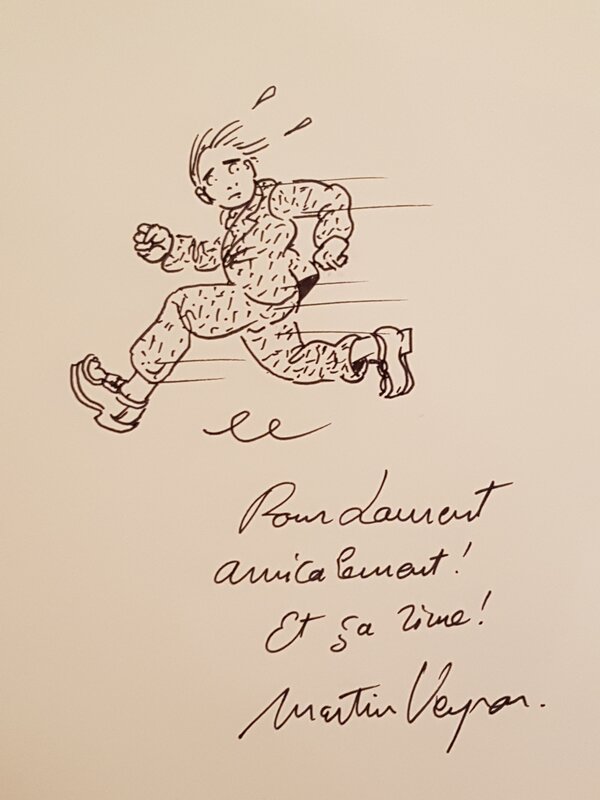 Pour Laurent
amicalement !
Et ça rime !
Martin Veyron.